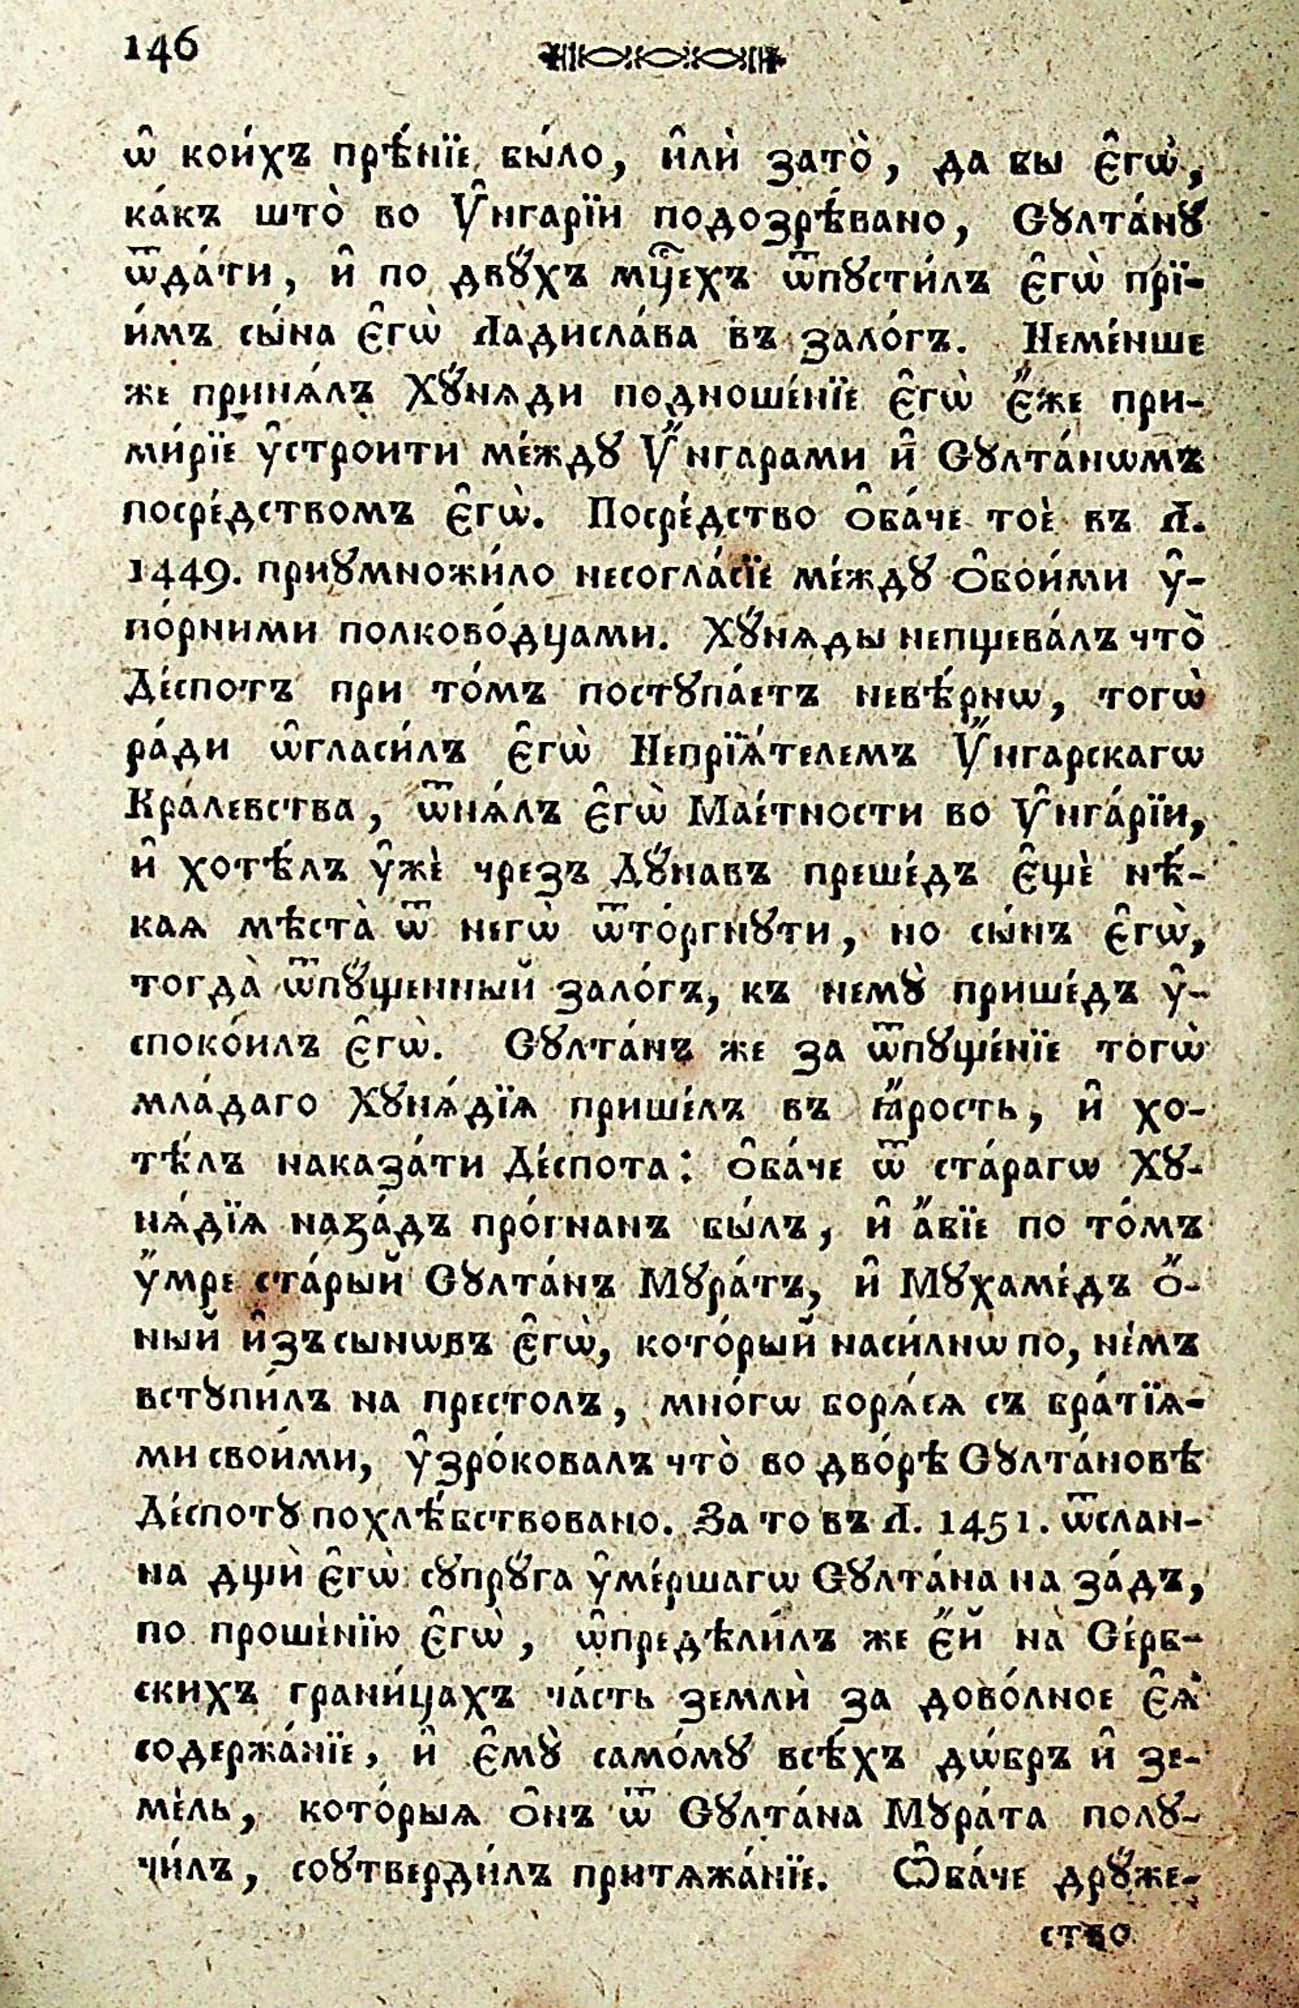 146
ѡ҆ кои́хъ прѣ́нїе бы́ло, и҆лѝ зато̀, да бы є҆гѡ̀,
ка́къ што̀ во Ѹ҆нгарїи подозрѣ́вано, Сꙋлта́нꙋ
ѿда́ти, и҆ по двꙋ́хъ мц҃ехъ ѿпꙋсти́лъ є҆гѡ̀ прїи-
и́мъ сы́на є҆гѡ̀ Ладисла́ва въ зало́гъ. Неме́нше
же прина́лъ Хꙋ́нѧди подноше́нїе є҆гѡ̀ є҆́же при-
ми́рїе ᲂу҆строити ме́ждꙋ Ѹ҆́нгарами и҆ Сꙋлта́нѡмъ
посре́дствомъ є҆гѡ̀. Посре́дство ѻ҆ба́че тоѐ въ Л.
1449. приꙋмножи́ло несогла́сїе ме́ждꙋ ѻ҆бои́ми ᲂу҆-
по́рними полково́дцами. Хꙋ́нѧды непщева́лъ что̀
Де́спотъ при то́мъ постꙋпа́етъ невѣ́рнѡ, тогѡ̀
ра́ди ѡ҆гласи́лъ є҆гѡ̀ Непрїѧ́телемъ Ѹ҆́нгарскагѡ
Кра́левства, ѿнѧ́лъ є҆гѡ̀ Мае́тности во Ѹ҆нга́рїи,
и҆ хотѣ́лъ ᲂу҆жѐ чрезъ Дꙋ́навъ преше́дъ є҆щѐ нѣ́-
каѧ мѣста̀ ѿ негѡ̀ ѿто́ргнꙋти, но сы́нъ є҆гѡ̀,
тогда̀ ѿпꙋ́щенный зало́гъ, къ немꙋ̀ прише́дъ ᲂу҆-
споко́илъ є҆гѡ̀. Сꙋлта́нъ же за ѿпꙋще́нїе тогѡ̀
мла́даго Хꙋнѧ́дїѧ прише́лъ въ ꙗ҆́рость, и҆ хо-
тѣ́лъ наказа́ти Де́спота: ѻ҆ба́че ѿ ста́рагѡ Хꙋ-
нѧ́дїѧ наза́дъ про́гнанъ бы́лъ, и҆ а҆́бїе по то́мъ
ᲂу҆́мре ста́рый Сꙋлта́нъ Мꙋра́тъ, и҆ Мꙋхаме́дъ ѻ҆́-
ный и҆зъ сынѡвъ є҆гѡ̀, кото́рый наси́лнѡ по, не́мъ
встꙋпи́лъ на престолъ, мно́гѡ борѧ́сѧ съ бра́тїѧ-
ми свои́ми, ᲂу҆зро́ковалъ что̀ во дво́рѣ Сꙋлта́новѣ
Де́спотꙋ похлѣ́бствовано. За то въ Л. 1451. ѿслан-
на дщѝ є҆гѡ̀ сꙋпрꙋ́га ᲂу҆ме́ршагѡ Сꙋлта́на на за́дъ,
по проше́нїю є҆гѡ̀, ѡ҆предѣли́лъ же є҆́й на̀ Се́рб-
скихъ грани́цахъ ча́сть землѝ за дово́лное є҆ѧ̀
содержа́нїе, и҆ є҆мꙋ̀ само́мꙋ всѣ́хъ дѡ́бръ и҆ зе-
ме́ль, кото́рыѧ ѻ҆нъ ѿ Сꙋлта́на Мꙋра́та полꙋ-
чи́лъ, соꙋтверди́лъ притѧжа́нїе. Ѡ҆ба́че дрꙋ́же-
ство